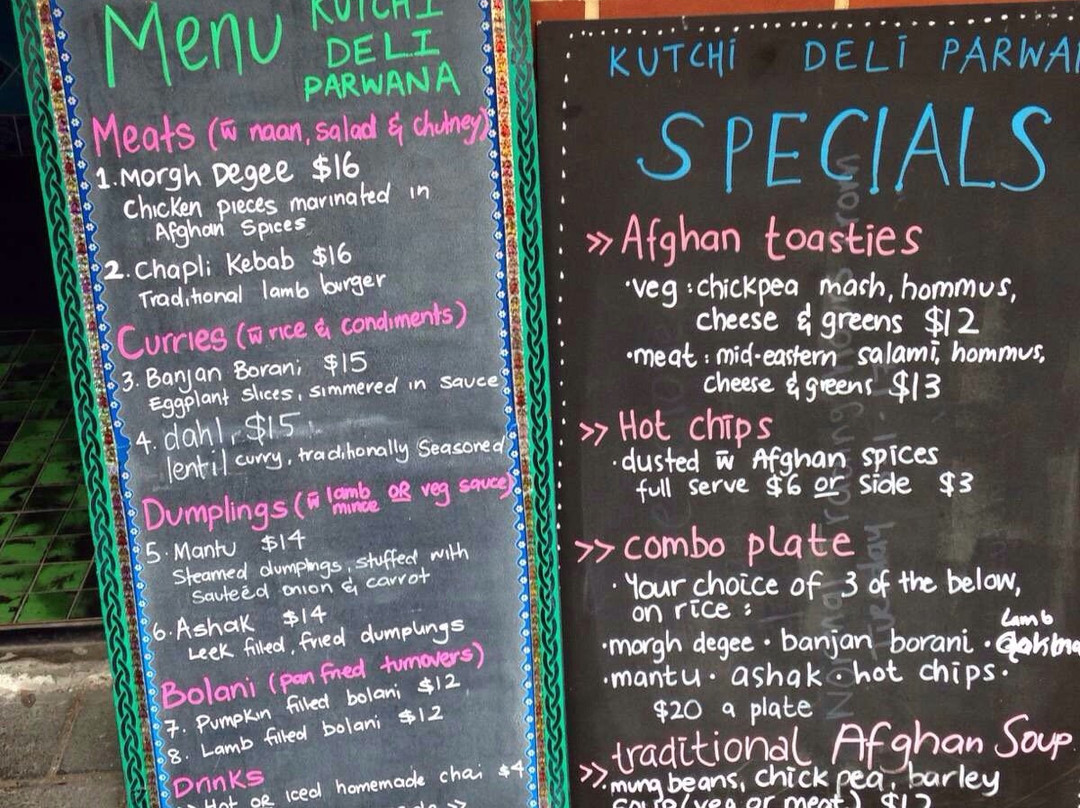 Menu
KUTCHI
DELI
PARWANA
Meats (w̄ naan, salad & chutney)
1. Morgh Degee $16
Chicken pieces marinated in
Afghan Spices
2. Chapli Kebab $16
Traditional lamb burger
Curries (w̄ rice & condiments)
3. Banjan Borani $15
Eggplant slices, simmered in sauce
4. dahl, $15
lentil curry, traditionally seasoned
Dumplings (w̄ lamb mince OR veg sauce)
5. Mantu $14
Steamed dumplings, stuffed with
sauteéd onion & carrot
6. Ashak $14
Leek filled, fried dumplings
Bolani (pan fried turnovers)
7. Pumpkin filled bolani $12
8. Lamb filled bolani $12
Drinks
>> Hot OR iced homemade chai $4
KUTCHI DELI PARWA
SPECIALS
>> Afghan toasties
· veg : chickpea mash, hommus,
cheese & greens $12
· meat : mid-eastern salami, hommus,
cheese & greens $13
>> Hot chips
· dusted w̄ Afghan spices
full serve $6 or side $3
>> combo plate
· Your choice of 3 of the below,
on rice :
Lamb
· morgh degee · banjan borani ·
· mantu · ashak · hot chips ·
$20 a plate
>> traditional Afghan Soup
mung beans, chick pea, barley
soup (veg or meat) $12